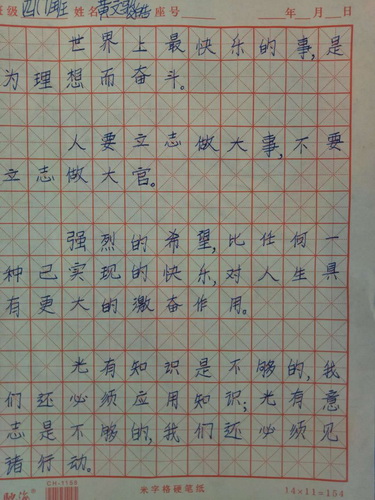 班级 四(1)班 姓名 座号 年 月 日
世界上最快乐的事,是
为理想而奋斗。
人要立志做大事,不要
立志做大官。
强烈的希望,比任何一
种己实现的快乐,对人生具
有更大的激奋作用。
光有知识是不够的,我
们还必须应用知识;光有意
志是不够的,我们还必须见
诸行动。
CH-1154
米字格硬笔纸
14×11=154